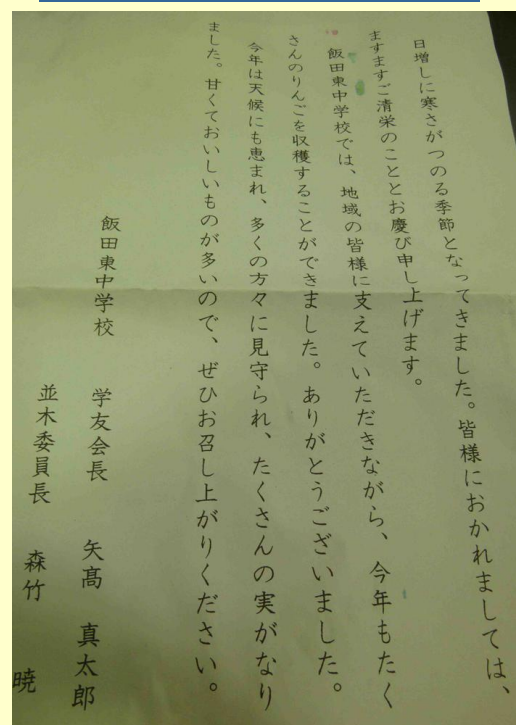 日増しに寒さがつのる季節となってきました。皆様におかれましては、
ますますご清栄のこととお慶び申し上げます。
飯田東中学校では、地域の皆様に支えていただきながら、今年もたく
さんのりんごを収穫することができました。ありがとうございました。
今年は天候にも恵まれ、多くの方々に見守られ、たくさんの実がなり
ました。甘くておいしいものが多いので、ぜひお召し上がりください。
飯田東中学校 学友会長 矢髙 真太郎
並木委員長 森竹 暁